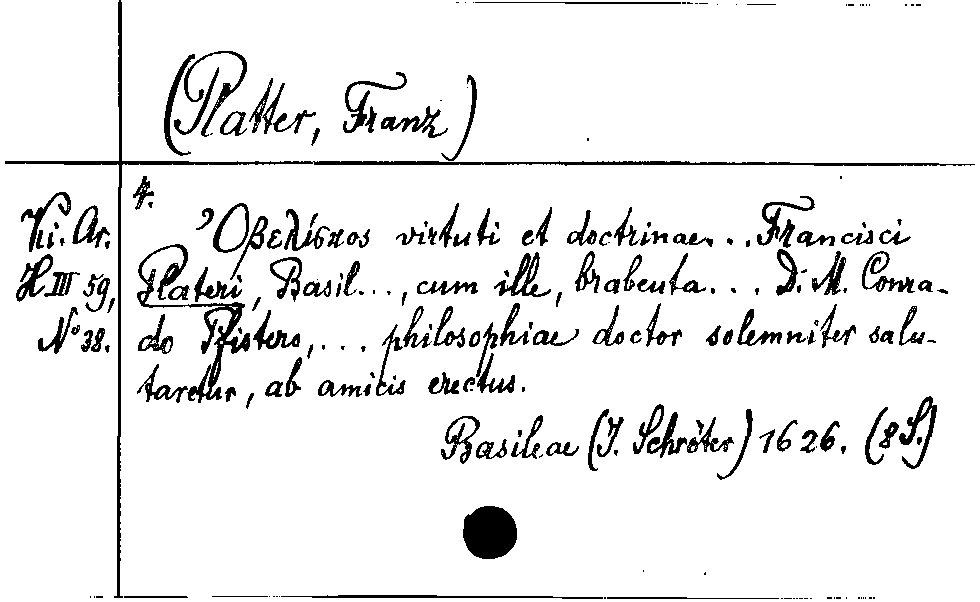 (Platter, Franz)
4.
Ki. Ar.
H III 59,
N° 38.
Ὀβελίσκος virtuti et doctrinae... Francisci
Plateri, Basil..., cum ille, brabeuta... D. M. Conra-
do Pfistero,... philosophiae doctor solemniter salu-
taretur, ab amicis erectus.
Basileae (J. Schröter) 1626. (8 S.)